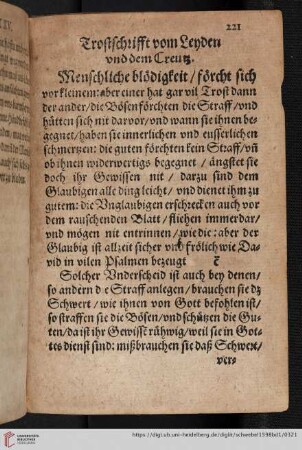 221
Trostschrifft vom Leyden
vnd dem Creutz.
Menschliche blödigkeit / förcht sich
vor kleinem: aber einer hat gar vil Trost dann
der ander / die Bösen förchten die Straff / vnd
hütten sich nit darvor / vnd wann sie ihnen be-
gegnet / haben sie innerlichen vnd eusserlichen
schmertzen: die guten förchten kein Straff / vñ
ob ihnen widerwertigs begegnet / ängstet sie
doch ihr Gewissen nit / darzu sind dem
Glaubigen alle ding leicht / vnd dienet ihm zu
gutem: die Vnglaubigen erschrecken auch vor
dem rauschenden Blatt / fliehen immerdar /
vnd mögen nit entrinnen / wie die: aber der
Glaubig ist allzeit sicher vnd frölich wie Da-
vid in vilen Psalmen bezeugt
Solcher Vnderscheid ist auch bey denen /
so andern die Straff anlegen / brauchen sie dz
Schwert / wie ihnen von Gott befohlen ist /
so straffen sie die Bösen / vnd schützen die Gu-
ten / da ist ihr Gewissẽ rühwig / weil sie in Got-
tes dienst sind: mißbrauchen sie daß Schwert /
ver-
https://digi.ub.uni-heidelberg.de/diglit/schwebel1598bd1/0321
UNIVERSITÄTS-
BIBLIOTHEK
HEIDELBERG